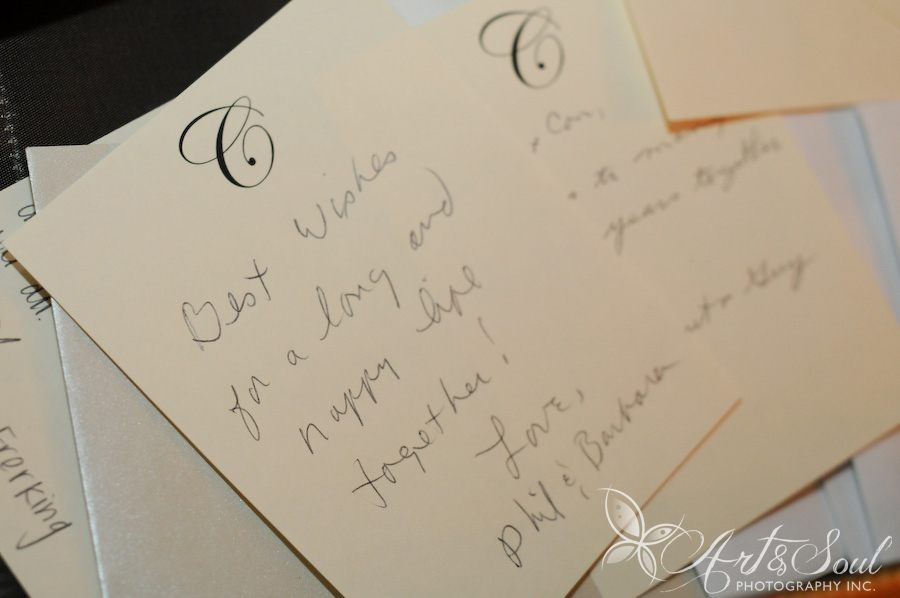 C
Best Wishes
for a long and
happy life
together!
Love,
Phil & Barbara
C
to many
years together
Gary
all.
Frerking
Art & Soul
PHOTOGRAPHY INC.